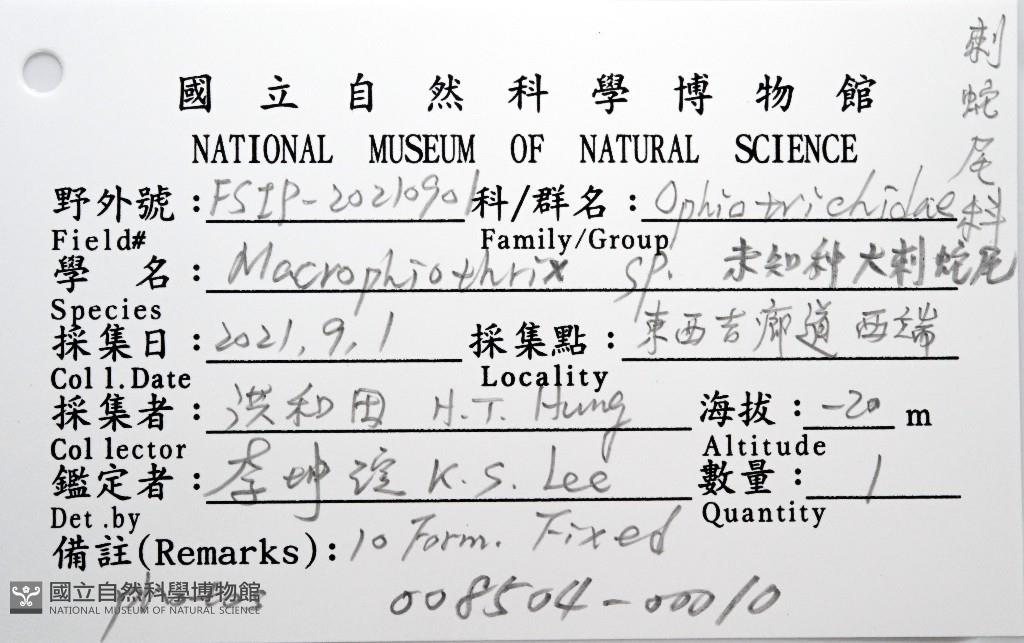 國立自然科學博物館
NATIONAL MUSEUM OF NATURAL SCIENCE
刺蛇尾科
野外號：FSIP-20210901 科/群名：Ophiotrichidae
Field# Family/Group
學 名：Macrophiothrix sp. 未知种大刺蛇尾
Species
採集日：2021,9,1 採集點：東西吉廊道西端
Coll.Date Locality
採集者：洪和田 H.T. Hung 海拔：-20 m
Collector Altitude
鑑定者：李坤瑄 K.S. Lee 數量：1
Det.by Quantity
備註(Remarks)：10 Form. Fixed
008504-00010
國立自然科學博物館
NATIONAL MUSEUM OF NATURAL SCIENCE